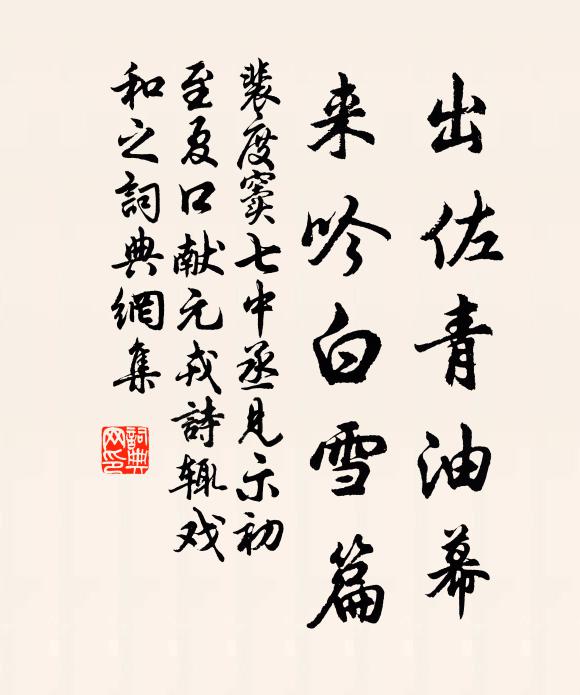 出佐青油幕
来吟白雪篇
裴度窦七中丞见示初
至夏口献元戎詩辄戏
和之詞典網集
詞典网印